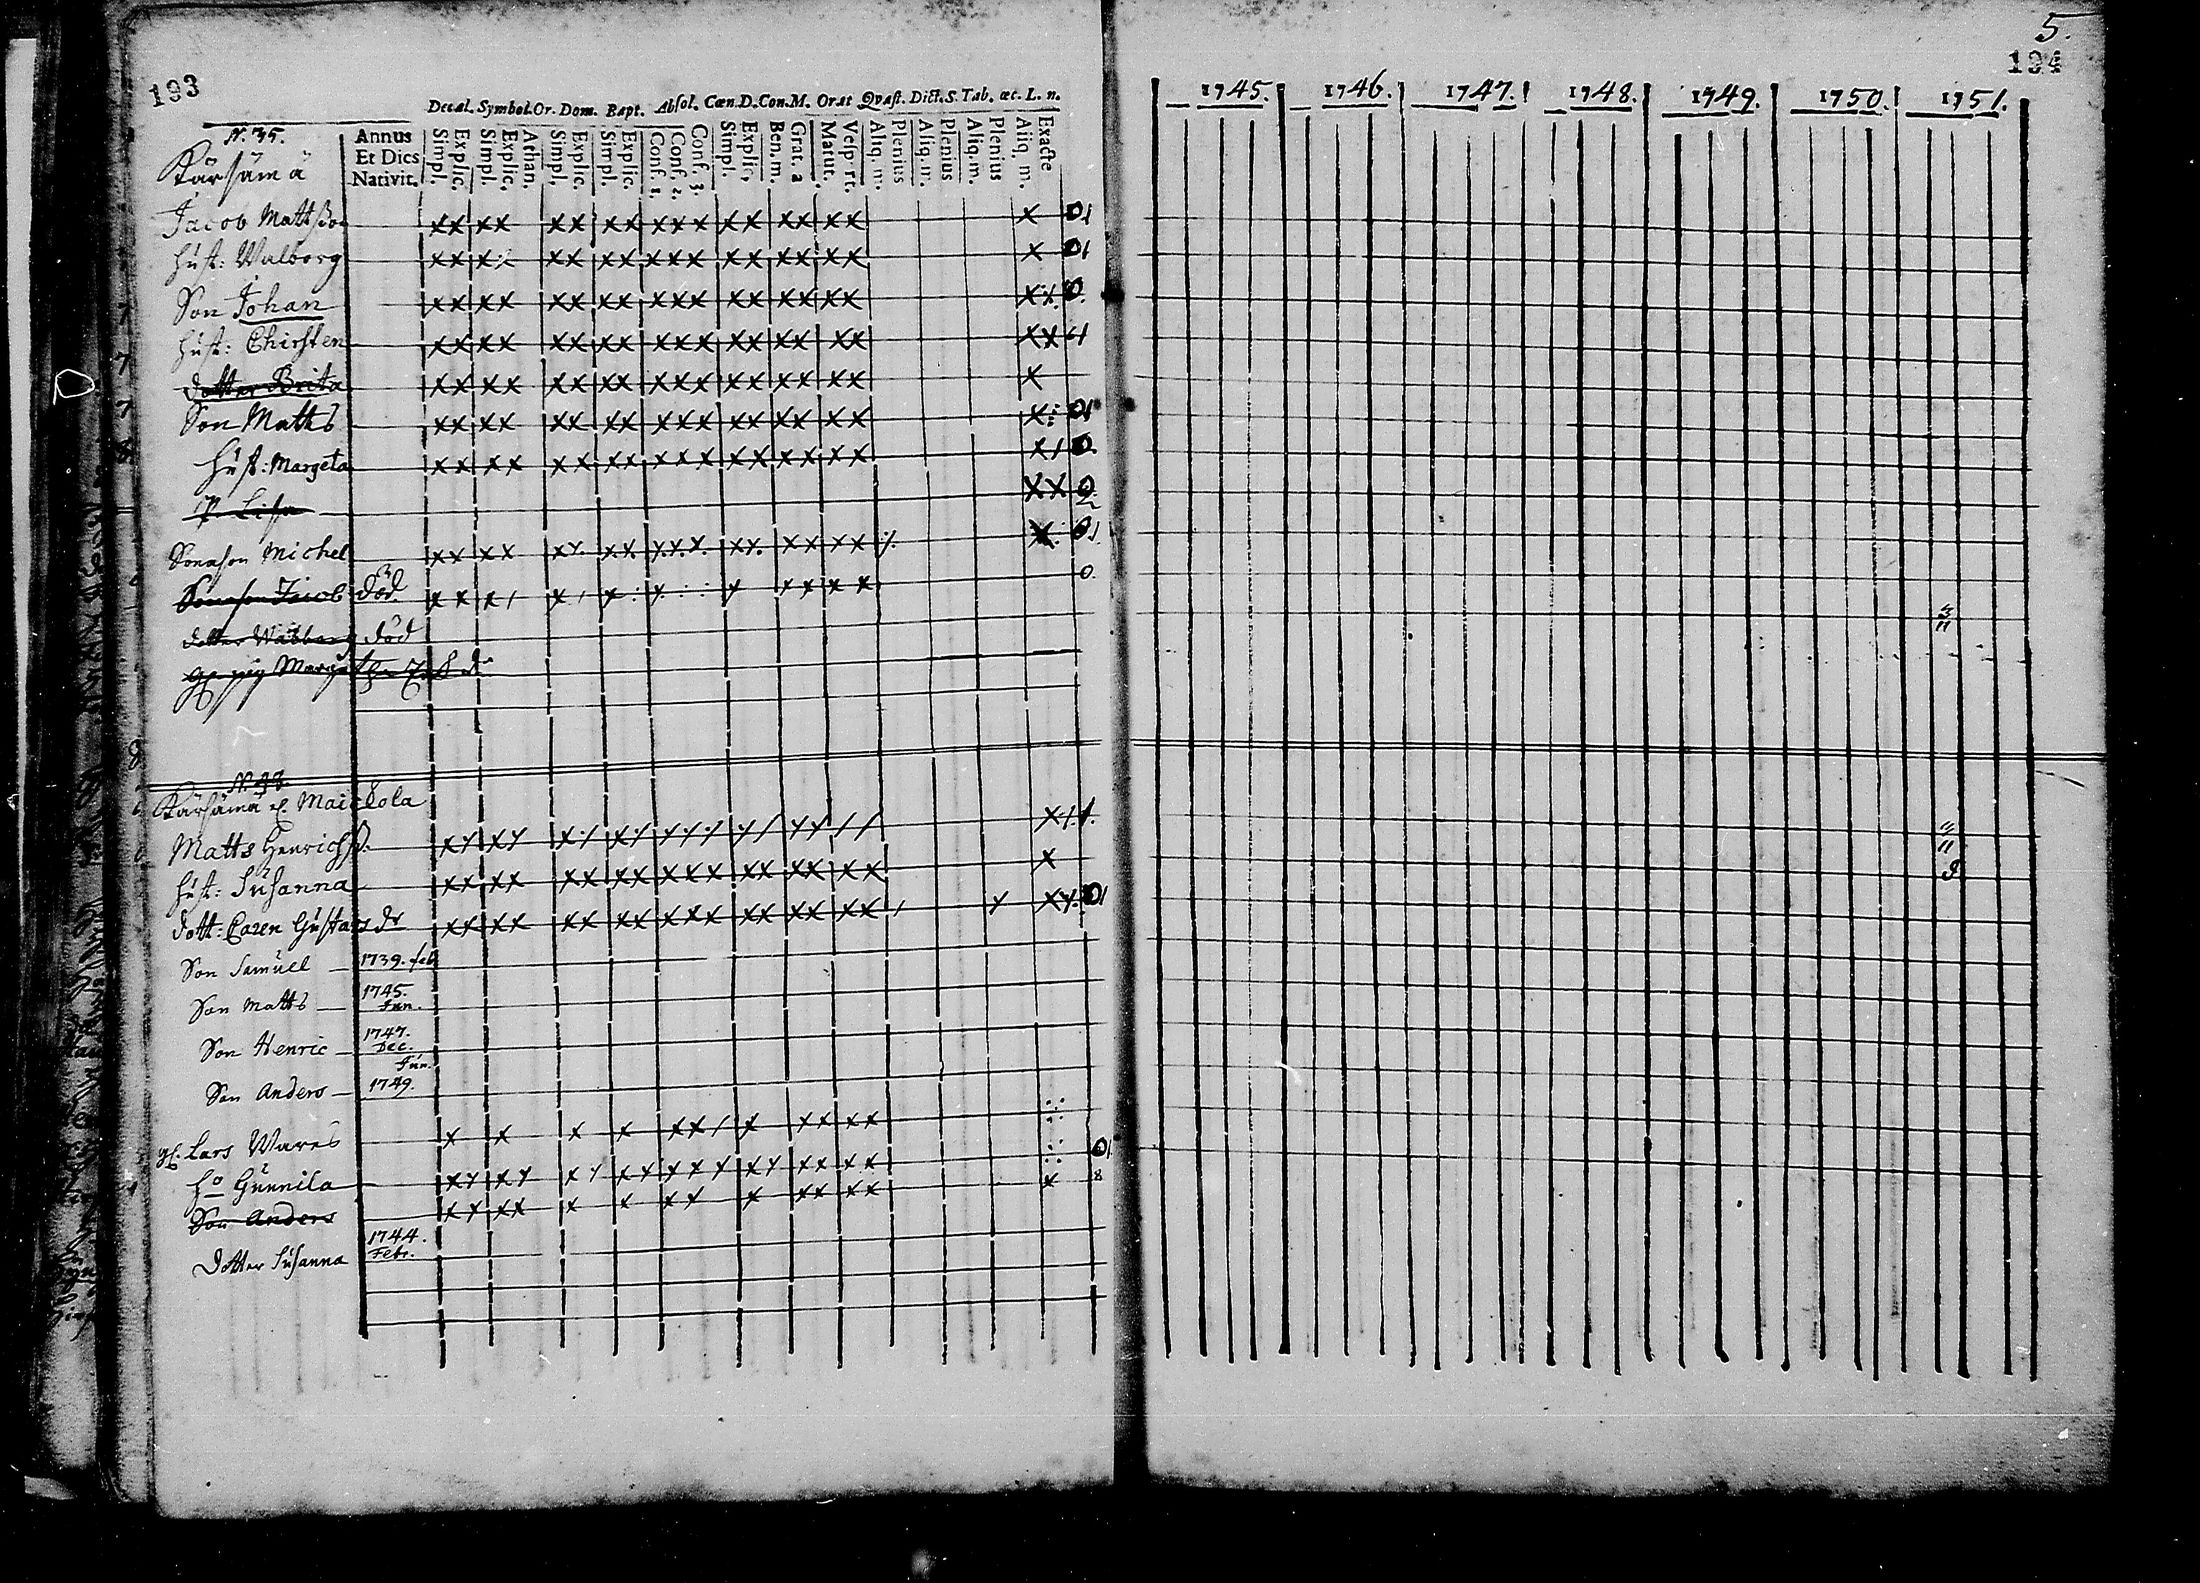 193
Decal. Symbol. Or. Dom. Bapt. Absol. Cœn. D. Con. M. Orat Qvæst. Dict. S. Tab. œc. L. n.
N. 35.
Kärsämä
Annus Et Dies Nativit.
Simpl. Explic. Simpl. Explic. Athan. Simpl. Explic. Simpl. Explic. Conf. 1. Conf. 2. Conf. 3. Simpl. Explic. Ben. m. Grat. a Matut. Vesp rt. Aliq. m. Plenius Aliq. m. Plenius Aliq. m. Plenius Aliq. m. Exacte
Jacob Mattsson
hust: Walborg
Son Johan
hust: Chirsten
dotter Brita
Son Matts
hust: Margeta
P. Lisa
Sonason Michel
Sonason Jacob död
dotter Walborg död
Kärsämä
Matts Henrichss.
hust: Susanna
dott: Caren Gustafs dr
Son Samuel 1739. feb
Son Matts 1745. Jun.
Son Henric 1747. Dec.
Son Anders 1749. Jun.
Lars Wares
ho Gunnila
Son Anders
Dotter Susanna 1744. Febr.
5.
194
1745. 1746. 1747. 1748. 1749. 1750. 1751.